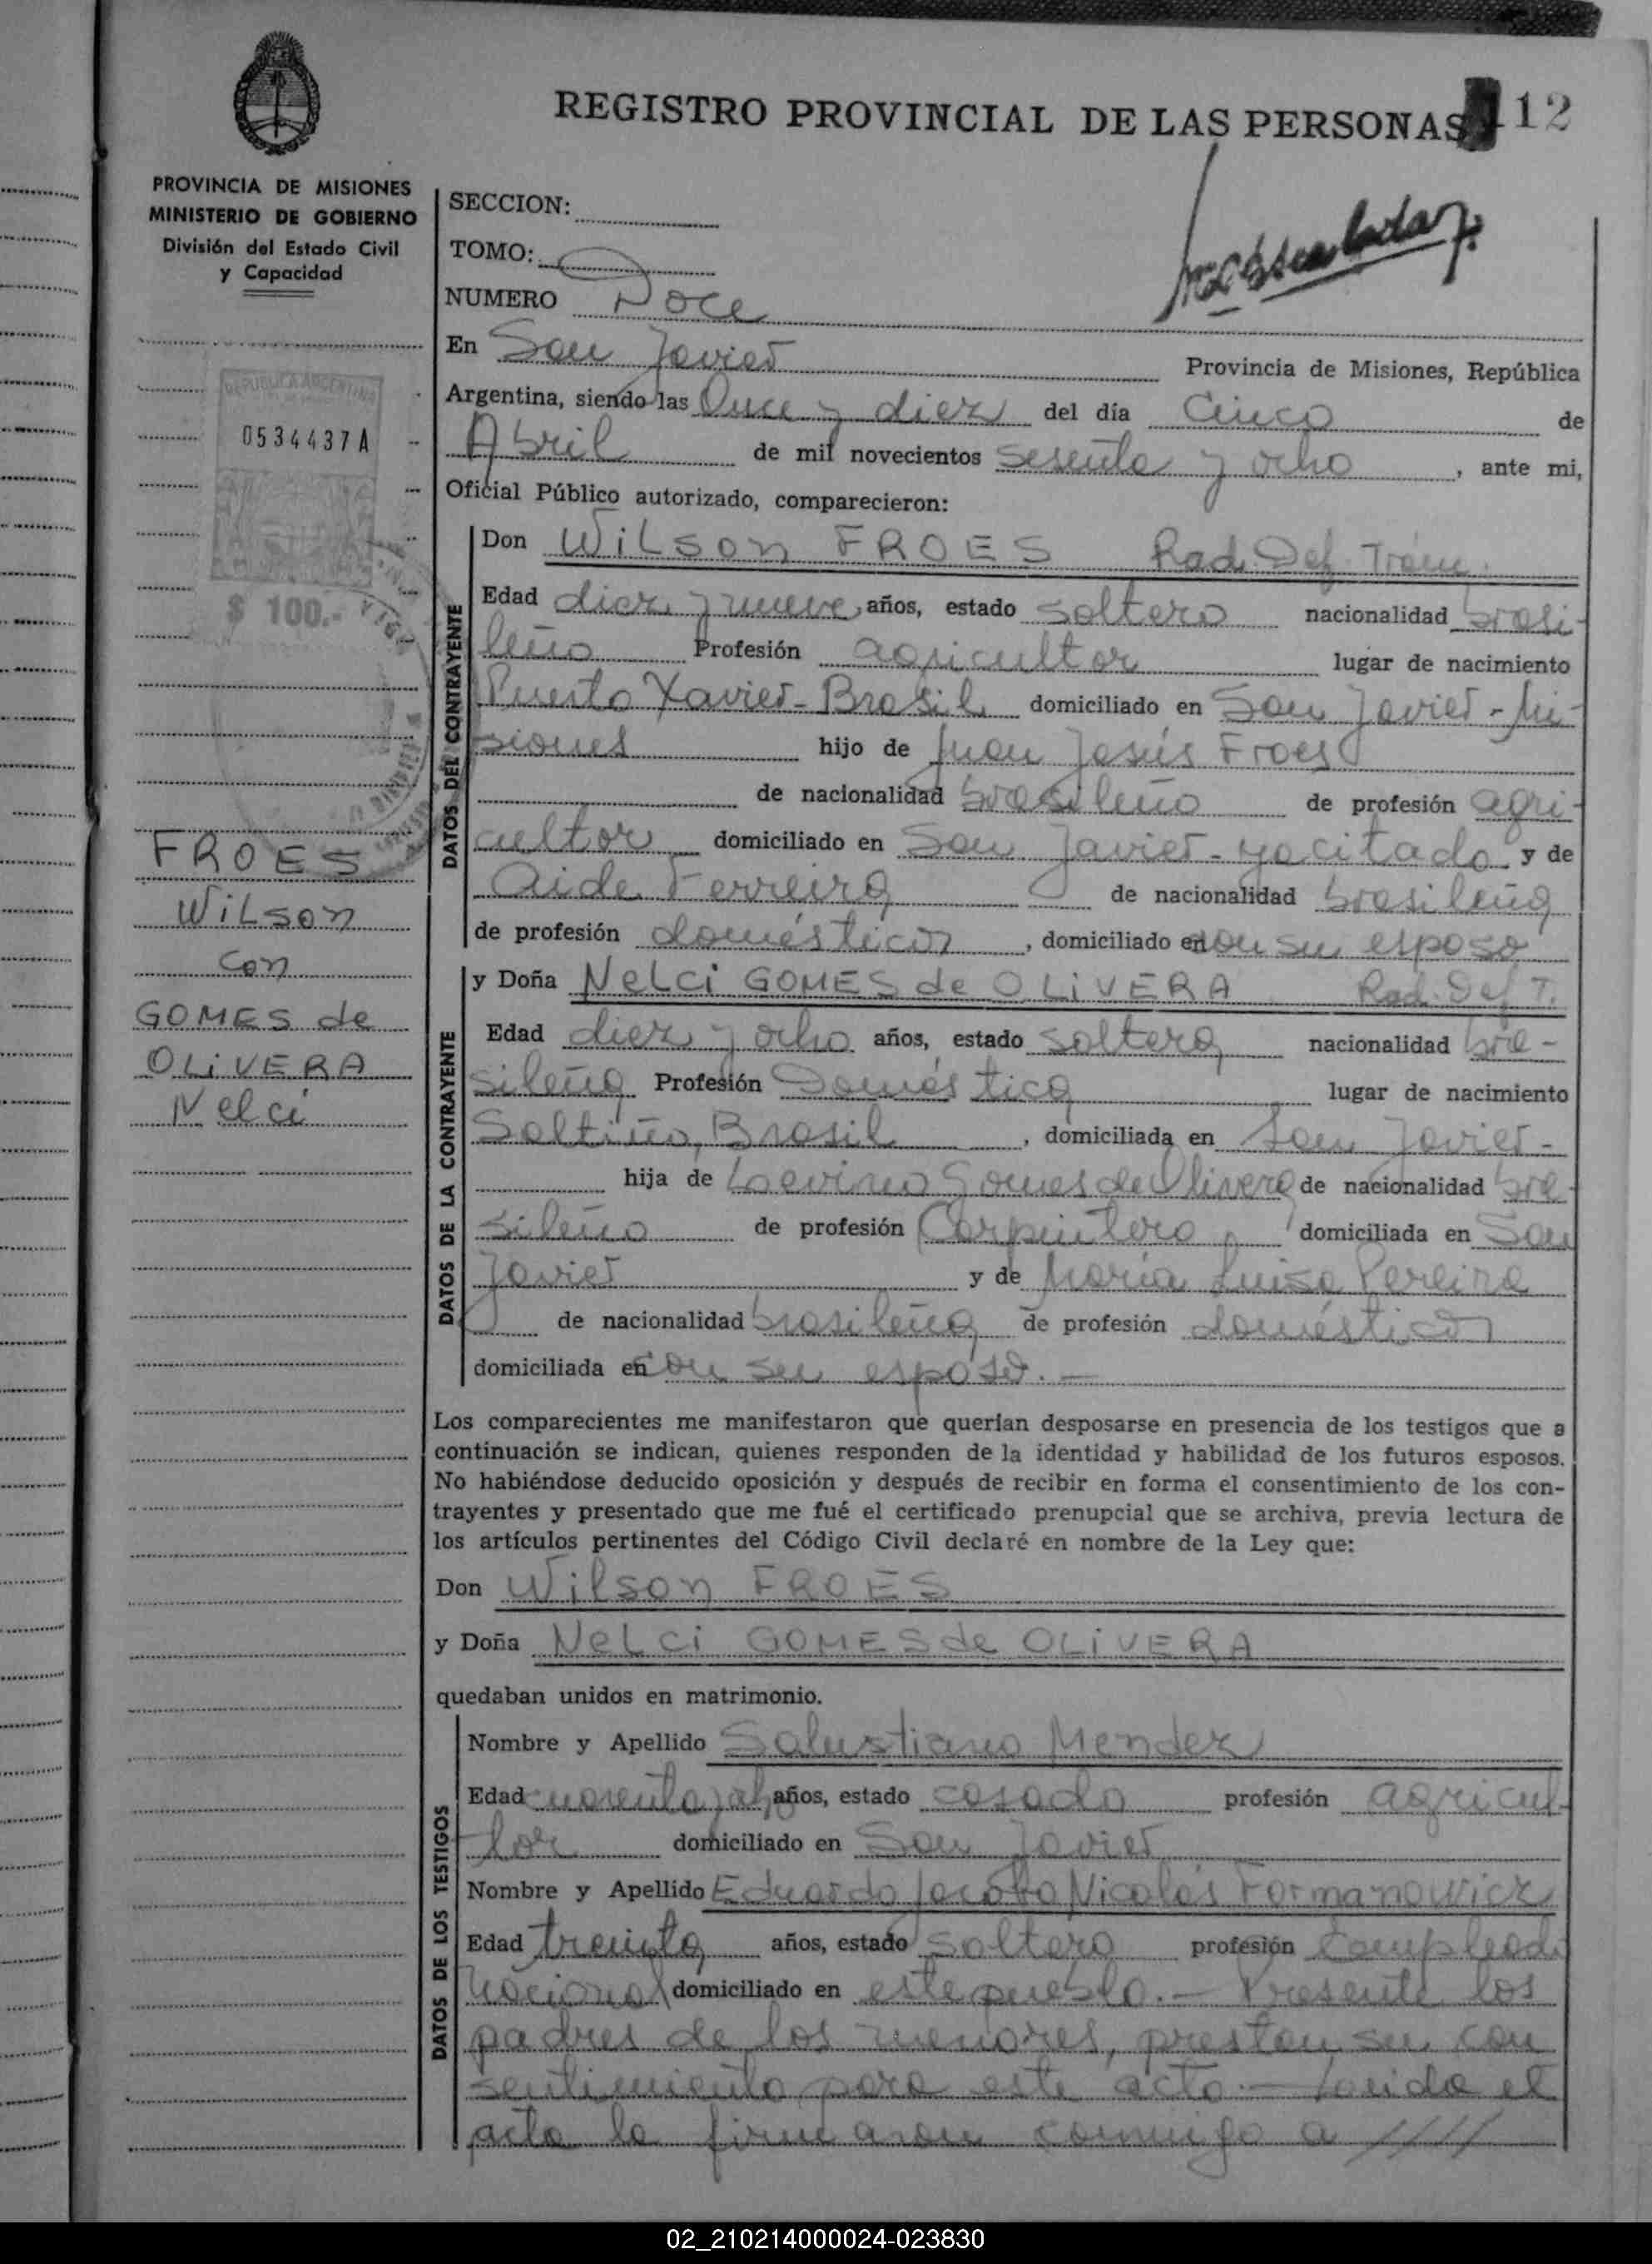 REGISTRO PROVINCIAL DE LAS PERSONAS 112
PROVINCIA DE MISIONES
MINISTERIO DE GOBIERNO
División del Estado Civil
y Capacidad
REPUBLICA ARGENTINA
0534437A
$ 100.-
FROES
WiLSon
con
GOMES de
OLiVERA
Nelci
SECCION:
TOMO:
NUMERO Doce
En San Javier Provincia de Misiones, República
Argentina, siendo las Once y diez del día Cinco de
Abril de mil novecientos sesenta y ocho, ante mi,
Oficial Público autorizado, comparecieron:
DATOS DEL CONTRAYENTE
Don WiLSon FROES Rad. Def. Trám.
Edad diez y nueve años, estado soltero nacionalidad brasi-
leño Profesión agricultor lugar de nacimiento
Puerto Xavier-Brasil domiciliado en San Javier-Mi-
siones hijo de Juan Jesús Froes
de nacionalidad brasileño de profesión agri-
cultor domiciliado en San Javier-ya citado y de
Aide Ferreira de nacionalidad brasileña
de profesión domésticas, domiciliado en con su esposo
DATOS DE LA CONTRAYENTE
y Doña NeLCi GOMES de OLiVERA Rad. Def T.
Edad diez y ocho años, estado soltera nacionalidad bra-
sileña Profesión Doméstica lugar de nacimiento
Saltiño, Brasil, domiciliada en San Javier-
hija de Gomes de Olivera de nacionalidad bra-
sileño de profesión Carpintero, domiciliada en San
Javier y de María Luisa Pereira
de nacionalidad brasileña de profesión domésticas
domiciliada en con su esposo.-
Los comparecientes me manifestaron que querían desposarse en presencia de los testigos que a
continuación se indican, quienes responden de la identidad y habilidad de los futuros esposos.
No habiéndose deducido oposición y después de recibir en forma el consentimiento de los con-
trayentes y presentado que me fué el certificado prenupcial que se archiva, previa lectura de
los artículos pertinentes del Código Civil declaré en nombre de la Ley que:
Don Wilson FROES
y Doña NeLCi GOMES de OLiVERA
quedaban unidos en matrimonio.
DATOS DE LOS TESTIGOS
Nombre y Apellido Salustiano Mendez
Edad años, estado casado profesión agricul-
tor domiciliado en San Javier
Nombre y Apellido Eduardo Jacobo Nicolás Formanowicz
Edad treinta años, estado soltero profesión empleado
nacional domiciliado en este pueblo.- Presente los
padres de los menores, prestan su con
sentimiento para este acto.- Leida el
acta la firmaron conmigo a ////
02_210214000024-023830